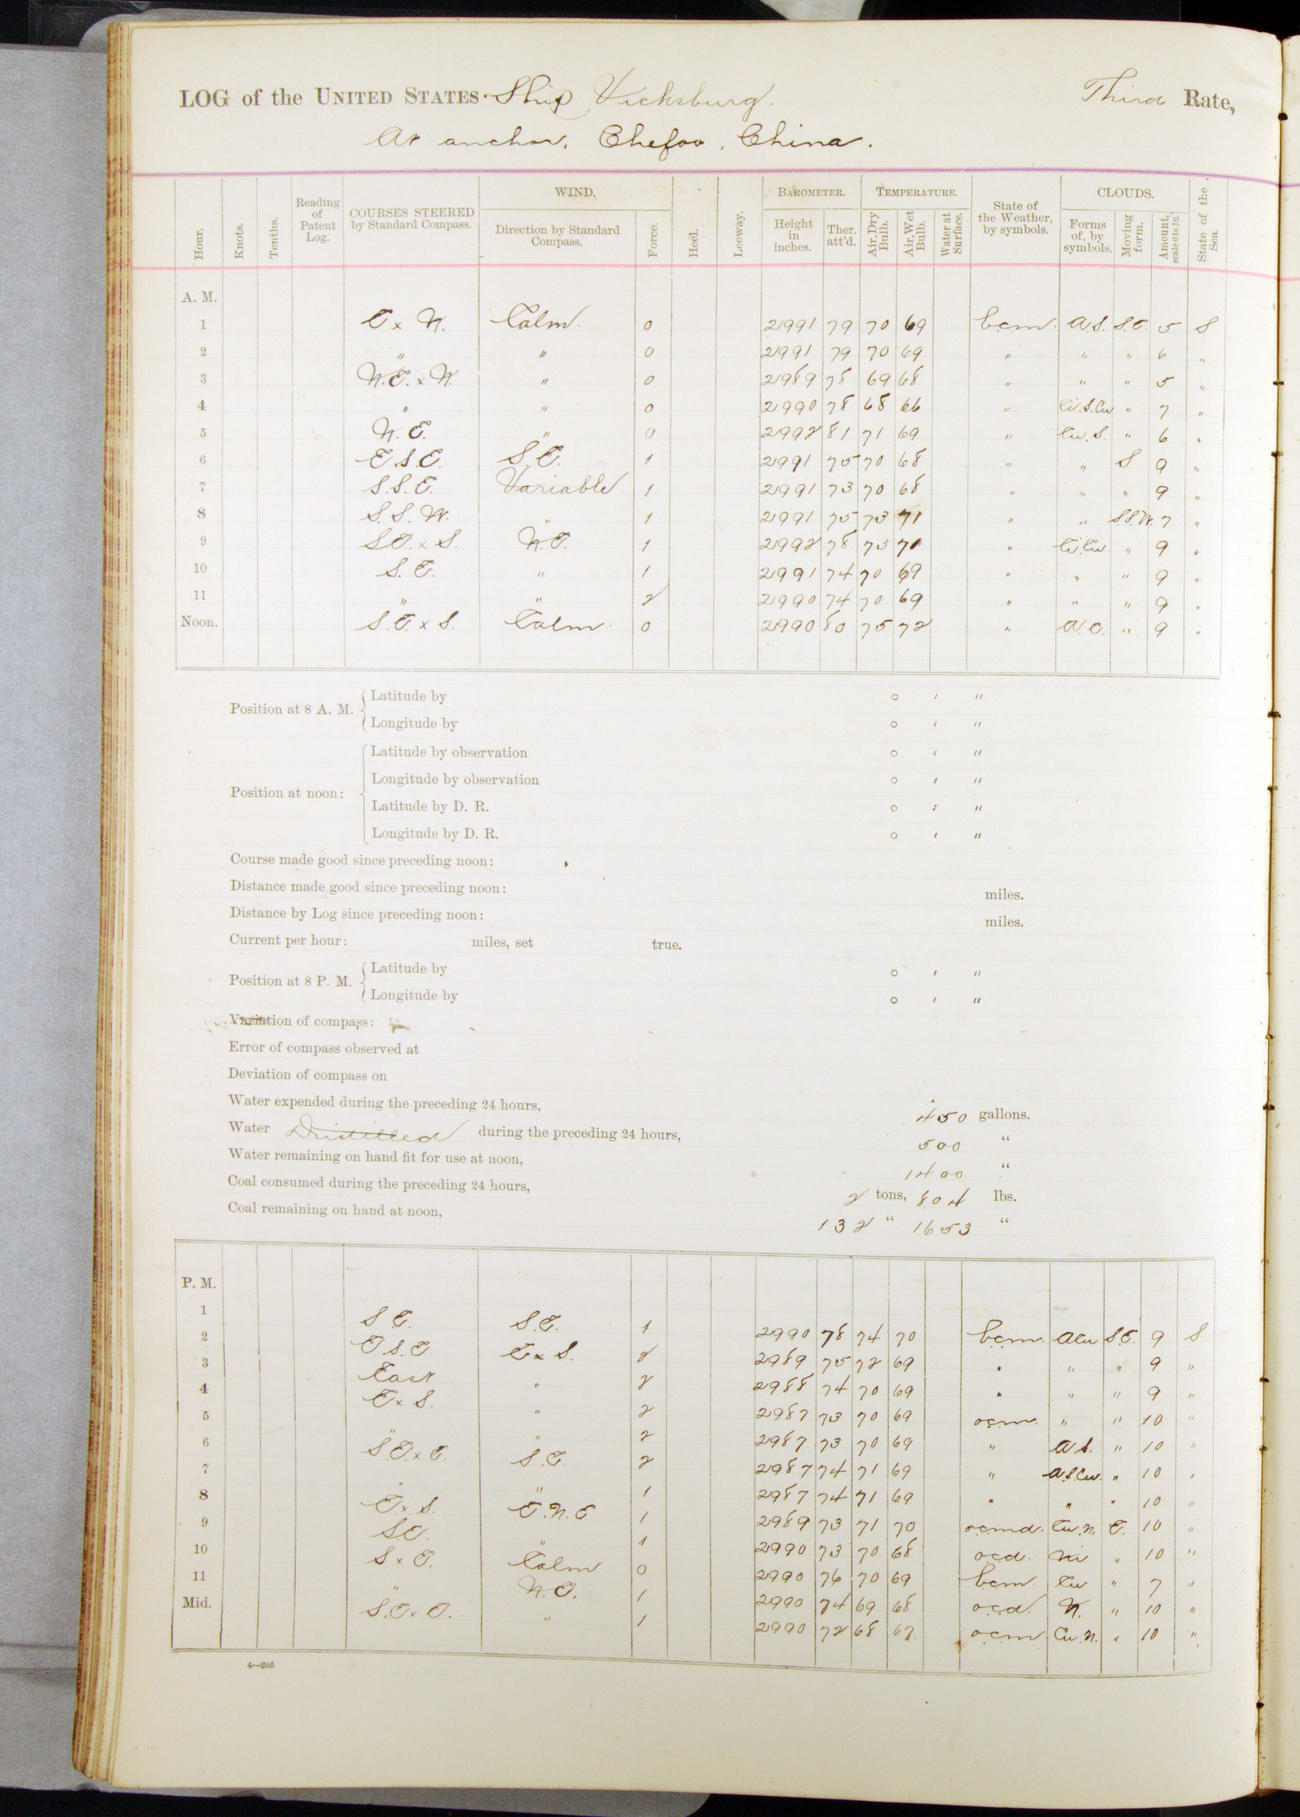 LOG of the UNITED STATES Ship Vicksburg. Third Rate,
At anchor, Chefoo, China.
Hour. Knots. Tenths. Reading of Patent Log. COURSES STEERED by Standard Compass. WIND. Direction by Standard Compass. Force. Heel. Leeway. BAROMETER. Height in inches. Ther. att'd. TEMPERATURE. Air, Dry Bulb. Air, Wet Bulb. Water at Surface. State of the Weather, by symbols. CLOUDS. Forms of, by symbols. Moving form. Amount, scale 0 to 10. State of the Sea.
A. M.
1 E x N. Calm. 0 2991 79 70 69 bcm. A.S. S.E. 5 S
2 " " 0 2991 79 70 69 " " " 6 "
3 N.E. x N. " 0 2989 78 69 68 " " " 5 "
4 " " 0 2990 78 68 66 " Ci.S.Cu " 7 "
5 N. E. " 0 2992 81 71 69 " Cu.S. " 6 "
6 E.S.E. S.E. 1 2991 75 70 68 " " S 9 "
7 S.S.E. Variable 1 2991 73 70 68 " " " 9 "
8 S.S.W. " 1 2991 75 73 71 " " S.S.W. 7 "
9 SE. x S. N.E. 1 2992 78 73 71 " Ci.Cu " 9 "
10 S.E. " 1 2991 74 70 69 " " " 9 "
11 " " 2 2990 74 70 69 " " " 9 "
Noon. S.E. x S. Calm. 0 2990 80 75 72 " A.C. " 9 "
Position at 8 A. M. Latitude by ° ' "
Longitude by ° ' "
Position at noon: Latitude by observation ° ' "
Longitude by observation ° ' "
Latitude by D. R. ° ' "
Longitude by D. R. ° ' "
Course made good since preceding noon:
Distance made good since preceding noon: miles.
Distance by Log since preceding noon: miles.
Current per hour: miles, set true.
Position at 8 P. M. Latitude by ° ' "
Longitude by ° ' "
Variation of compass:
Error of compass observed at
Deviation of compass on
Water expended during the preceding 24 hours, 450 gallons.
Water Distilled during the preceding 24 hours, 500 "
Water remaining on hand fit for use at noon, 1400 "
Coal consumed during the preceding 24 hours, 2 tons, 804 lbs.
Coal remaining on hand at noon, 132 " 1653 "
P. M.
1 S E. S.E. 1 2990 78 74 70 bcm. ACu S.E. 9 S
2 E S.E. E x S. 2 2989 75 72 69 " " " 9 "
3 East " 2 2988 74 70 69 " " " 9 "
4 E x S. " 2 2987 73 70 69 ocm. " " 10 "
5 " " 2 2987 73 70 69 " A.S. " 10 "
6 S.E. x E. S.E. 2 2987 74 71 69 " A.S.Cu. " 10 "
7 " " 1 2987 74 71 69 " " " 10 "
8 E x S. E.N.E 1 2989 73 71 70 ocmd. Cu.N. E. 10 "
9 SE. " 1 2990 73 70 68 ocd. Ni " 10 "
10 S x E. Calm 0 2990 76 70 69 bcm. Cu " 7 "
11 " N.E. 1 2990 74 69 68 ocd. N. " 10 "
Mid. S.E. x E. " 1 2990 72 68 67 ocm. Cu.N. " 10 "
4—265